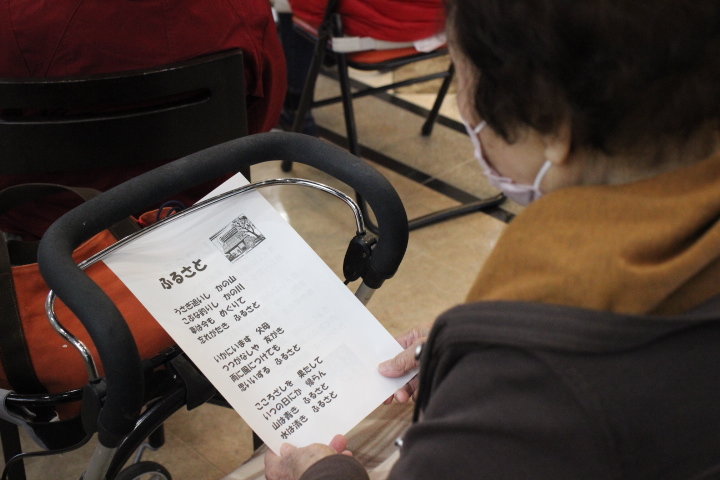 ふるさと
うさぎ追いし かの山
こぶな釣りし かの川
夢は今も めぐりて
忘れがたき ふるさと
いかにいます 父母
つつがなしや 友がき
雨に風につけても
思いいずる ふるさと
こころざしを 果たして
いつの日にか 帰らん
山は青き ふるさと
水は清き ふるさと